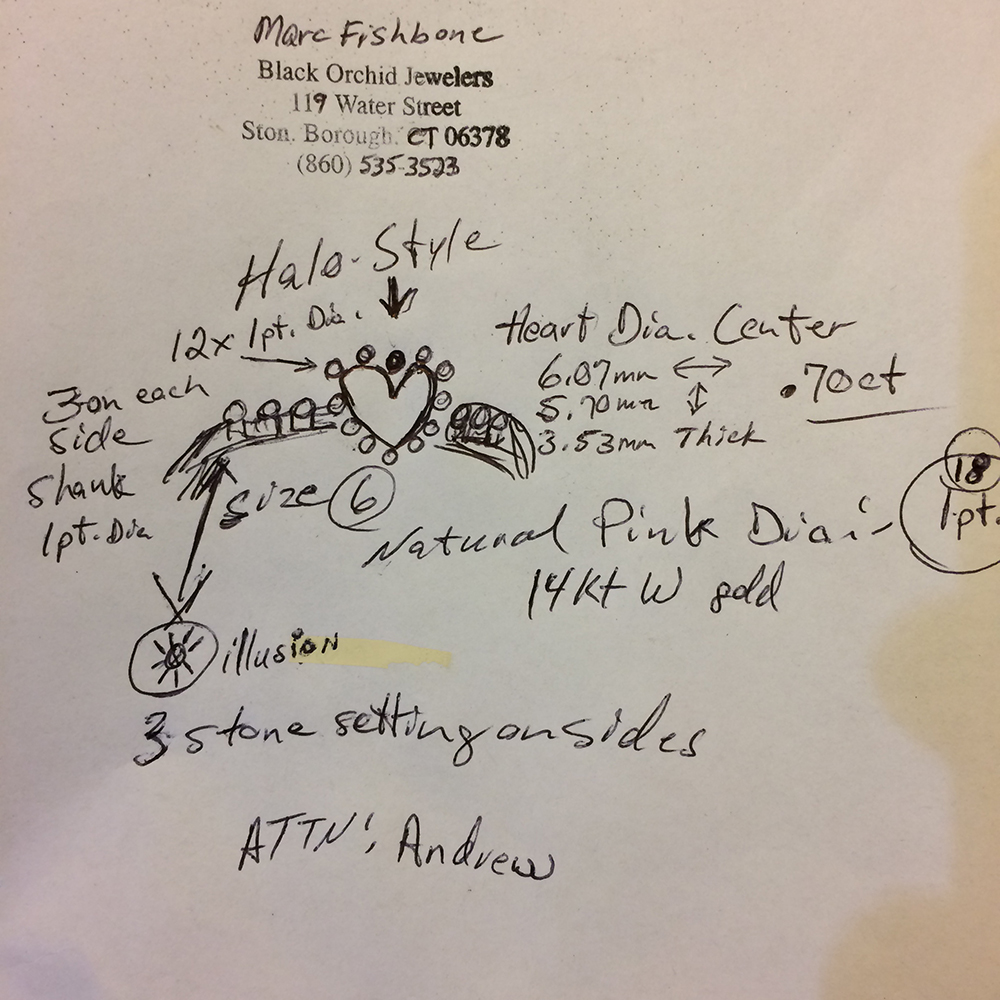 Marc Fishbone
Black Orchid Jewelers
119 Water Street
Ston. Borough. CT 06378
(860) 535-3523
Halo-Style
12x 1pt. Dia.
Heart Dia. Center
6.07mm
5.70mm
3.53mm Thick
.70ct
3 on each
side
shank
1pt. Dia
size 6
Natural Pink Dia's
18
1pt.
14Kt W gold
illusion
3 stone setting on sides
ATTN: Andrew